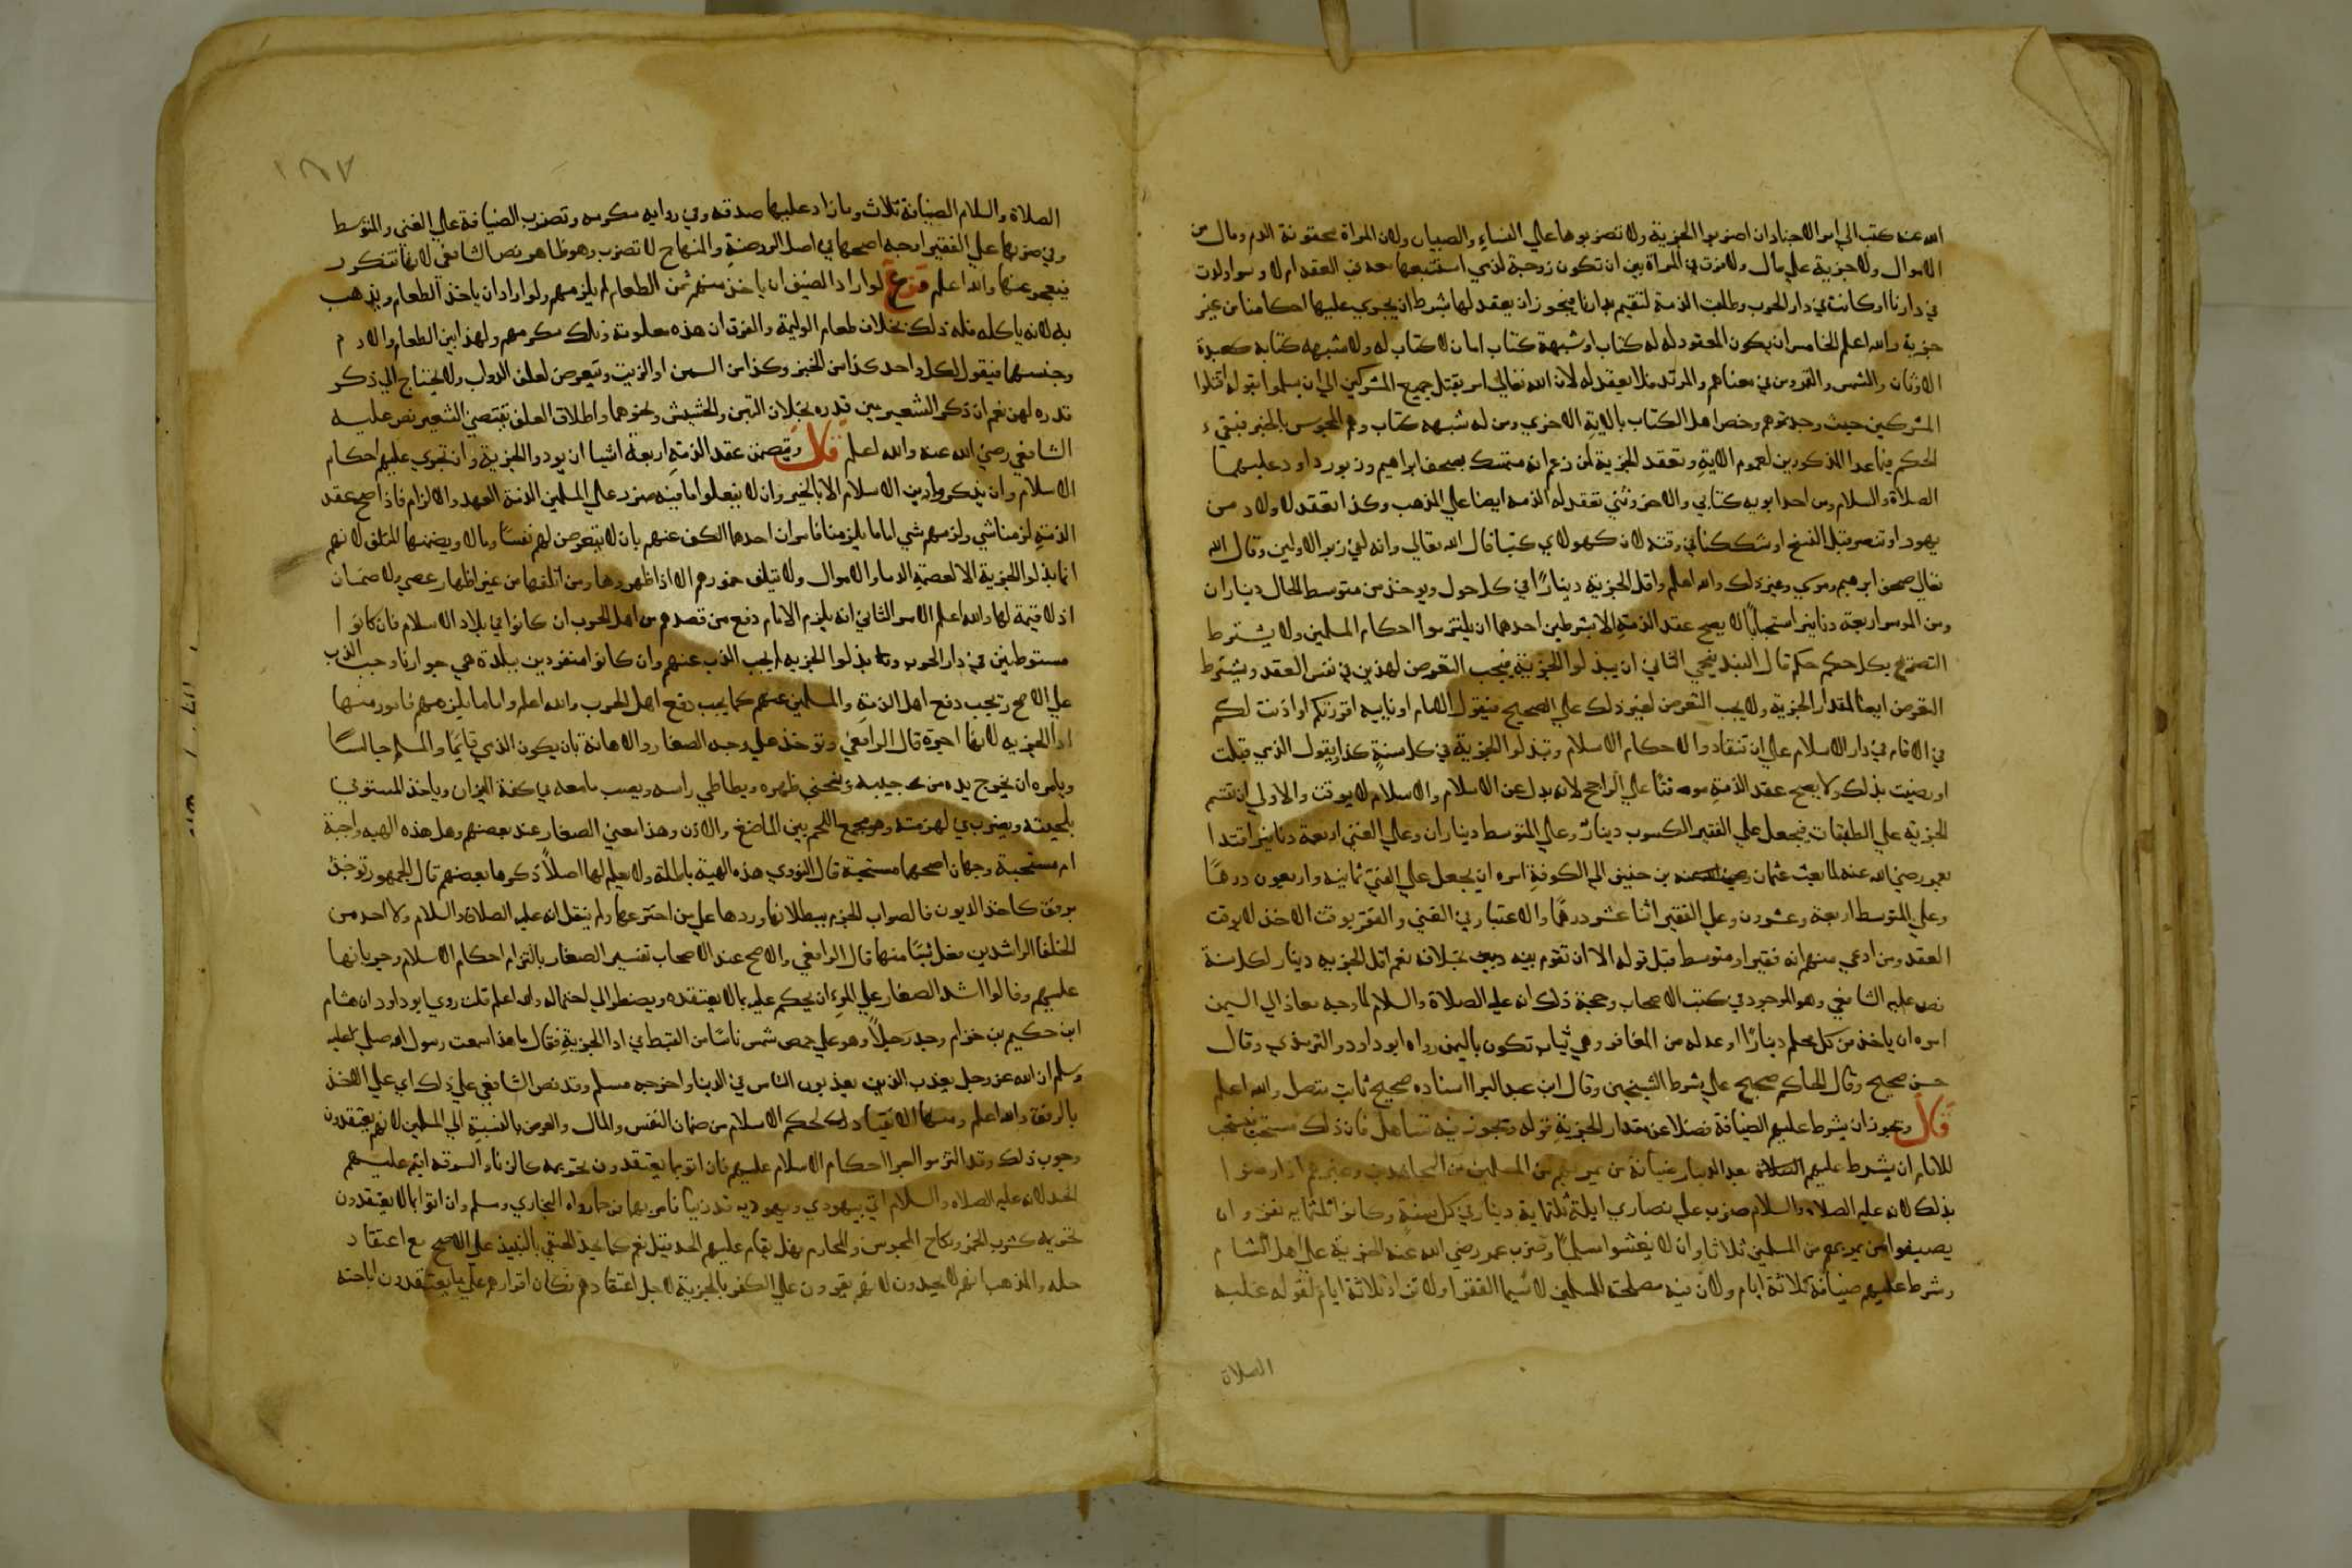 الله عنه كتب الي امرا الاجناد ان اضربوا الجزية ولا تضربوها علي النساء والصبيان ولان المراة محقونة الدم ومال من
الاموال ولا جزية علي مال ولا فرق في المراة بين ان تكون زوجية لذمي استتبعها بعد في العقد ام لا وسوا ولدت
في دارنا او كانت في دار الحرب وطلبت الذمة لتقيم بدارنا فيجوز ان يعقد لها بشرط ان يجري عليها احكامنا من غير
جزية والله اعلم الخامس ان يكون المعقود له له كتاب او شبهة كتاب اما من لا كتاب له ولا شبهه كتابه كعبدة
الاوثان والشمس والقمر ومن في معناهم والمرتد فلا يعقد له لان الله تعالي امر بقتل جميع المشركين الي ان يسلموا بقوله اقتلوا
المشركين حيث وجدتموهم وخص اهل الكتاب بالاية الاخري ومن له شبهه كتاب وهم المجوس بالخبر فبقي
الحكم فيما عدا المذكورين لعموم الاية وتعقد الجزية لمن زعم انه متمسك بصحف ابراهيم وزبور داود عليهما
الصلاة والسلام ومن احد ابويه كتابي والاخر وثني تعقد له الذمه ايضا علي المذهب وكذا تعقد لاولاد من
يهود او تنصر قبل النسخ او شككنا في وقته لان كهولاي كتبا قال الله تعالي وانه لفي زبر الاولين وقال الله
تعالي صحف ابرهيم وموسي وغير ذلك والله اعلم واقل الجزية دينارًا في كل حول ويوخذ من متوسط الحال ديناران
ومن الموسر اربعة دنانير استحبابًا لا يصح عقد الذمة الا بشرطين احدهما ان يلتزموا احكام المسلمين ولا يشترط
التصريح بكل حكم حكم قال البندنيجي الثاني ان يبذلوا الجزية فيجب التعرض لهذين في نفس العقد ويشترط
التعرض ايضا لمقدار الجزية ولا يجب التعرض لغير ذلك علي الصحيح فيقول الامام او نايبه اقررتكم او اذنت لكم
في الاقامه في دار الاسلام علي ان تنقادوا لاحكام الاسلام وتبذلوا الجزية في كل سنةٍ كذا ويقول الذمي قبلت
او رضيت بذلك ولا يصح عقد الذمة موقتًا علي الراجح لانه بدل عن الاسلام والاسلام لا يوقت والاولي ان تقسم
الجزية علي الطبقات فيجعل علي الفقير الكسوب دينارً وعلي المتوسط ديناران وعلي الغني اربعة دنانير اقتدا
بعمر رضي الله عنه لما بعث عثمان بن حنيف الي الكوفة امره ان يجعل علي الغني ثمانيه واربعون درهمًا
وعلي المتوسط اربعة وعشرون وعلي الفقير اثنا عشر درهما والاعتبار في الغني والفقر بوقت الاخذ لا بوقت
العقد ومن ادعي منهم انه فقير او متوسط قبل قوله الا ان تقوم بينه بخلافه نعم اقل الجزيه دينار لكل سنة
نص عليه الشافعي وهو الموجود في كتب الاصحاب وحجة ذلك انه عليه الصلاة والسلام لما وجه معاذ الي اليمن
امره ان ياخذ من كل محتلم دينارًا او عدله من المغافر وهي ثياب تكون باليمن رواه ابو داود والترمذي وقال
حسن صحيح وقال الحاكم صحيح علي شرط الشيخين وقال ابن عبد البر اسناده صحيح ثابت متصل والله اعلم
قال ويجوز ان يشرط عليهم الضيافة فضلا عن مقدار الجزية قوله ويجوز فيه تساهل فان ذلك مستحب فيستحب
للامام ان يشرط عليهم بعد الدينار ضيافة من يمر بهم من المسلمين من المجاهدين وغيرهم اذا رضوا
بذلك لانه عليه الصلاة والسلام ضرب علي نصاري ايلة ثلثماية دينار في كل سنةٍ وكانوا ثلثمايه نفر وان
يضيفوا من يمر بهم من المسلمين ثلاثا وان لا يغشوا مسلمًا وضرب عمر رضي الله عنه الجزية علي اهل الشام
وشرط عليهم ضيافة ثلاثة ايام ولان فيه مصلحة للمسلمين لا سيما الفقرا ولا تزاد ثلاثة ايام لقوله عليه
الصلاة
١٨٧
الصلاة والسلام الضيافة ثلاث وما زاد عليها صدقه وفي روايه مكرمه وتضرب الضيافة علي الغني والمتوسط
وفي ضربها علي الفقير اوجه اصحها في اصل الروضة والمنهاج لا تضرب وهو ظاهر نص الشافعي لانها تتكرر
فيعجز عنها والله اعلم فرع لو اراد الضيف ان ياخذ منهم ثمن الطعام لم يلزمهم ولو اراد ان ياخذ الطعام ويذهب
به لانه ياكله فله ذلك بخلاف طعام الوليمة والفرق ان هذه معلومة وتلك مكرمهم ولهذا يبين الطعام والادم
وجنسهما فيقول لكل واحد كذا من الخبز وكذا من السمن او الزيت ويتعرض لعلف الدواب ولا يحتاج الي ذكر
قدره لهن نعم ان ذكر الشعير يبين قدره بخلاف التبن والحشيش ونحوهما واطلاق العلف يقتضي الشعير نص عليه
الشافعي رضي الله عنه والله اعلم قال ويتضمن عقد الذمة اربعة اشيا ان يودوا الجزية وان تجري عليهم احكام
الاسلام وان يذكر دين الاسلام الا بالخير وان لا يفعلوا ما فيه ضرر علي المسلمين الذمة العهد والالزام فاذا صح عقد
الذمة لزمنا شي ولزمهم شي اما ما يلزمنا فامران احدهما الكف عنهم بان لا يتعرض لهم نفسًا ومالا ويضمنها المتلف لانهم
انما بذلوا الجزية الا لعصمة الدما والاموال ولا تتلف خمورهم الا اذا ظهروها ومن اتلفها من غير اظهار عصي ولا ضمان
اذ لا قيمة لها والله اعلم الامر الثاني انه يلزم الامام دفع من قصدهم من اهل الحرب ان كانوا في بلاد الاسلام فان كانوا
مستوطنين في دار الحرب وبذلوا الجزيه لم يجب الذب عنهم وان كانوا منفردين ببلدة هي جوارنا وجب الذب
علي الاصح ويجب دفع اهل الذمة والمسلمين عنهم كما يجب دفع اهل الحرب والله اعلم واما ما يلزمهم فامور منها
ادا الجزيه لانها اجرة قال الرافعي وتوخذ علي وجه الصغار والاهانة بان يكون الذمي قايمًا والمسلم جالسًا
ويامره ان يخرج يده من جيبه ويحني ظهره ويطاطي راسه ويصب ما معه في كفة الميزان وياخذ المستوفي
بلحيته ويضرب في لهزمته وهو مجمع اللحم بين الماضغ والاذن وهذا معني الصغار عند بعضهم وهل هذه الهيه واجبة
ام مستحبة وجهان اصحهما مستحبة قال النووي هذه الهيئة باطلة ولا يعلم لها اصلاً ذكرها بعضهم قال الجمهور توخذ
برفق كاخذ الديون فالصواب الجزم ببطلانها وردها علي من اخترعها ولم ينقل انه عليه الصلاة والسلام ولا احد من
الخلفا الراشدين فعل شيًا منها قال الرافعي والاصح عند الاصحاب تفسير الصغار بالتزام احكام الاسلام وجريانها
عليهم وقالوا اشد الصغار علي المرء ان يحكم عليه بما لا يعتقده ويضطر الي احتماله والله اعلم قلت روي ابو داود ان هشام
ابن حكيم بن حزام وجد رجلاً وهو علي حمص شمس ناسًا من القبط في ادا الجزية فقال ما هذا سمعت رسول الله صلي الله عليه
وسلم ان الله عز وجل يعذب الذين يعذبون الناس في الدينا واخرجه مسلم وقد نص الشافعي علي ذلك اي علي الاخذ
بالرفق والله اعلم ومنها الانقياد لحكم الاسلام من ضمان النفس والمال والعرض بالنسبة الي المسلمين لانهم يعتقدون
وجوب ذلك وقد التزموا اجرا احكام الاسلام عليهم فان اتوا بما يعتقدون تحريمه كالزنا والسرقه اقيم عليهم
الحد لانه عليه الصلاه والسلام اتي بيهودي ويهوديه قد زنيا فامر بهما فرجما رواه البخاري ومسلم وان اتوا بما لا يعتقدون
تحريمه كشرب الخمر ونكاح المجوس والمحارم فهل يقام عليهم الحد قيل نعم كما يحد الحنفي بالنبيذ علي الاصح مع اعتقاد
حله والمذهب انهم لا يحدون لانهم يقرون علي الكفر بالجزية لاجل اعتقادهم فكان اقرارهم علي ما يعتقدون اباحته